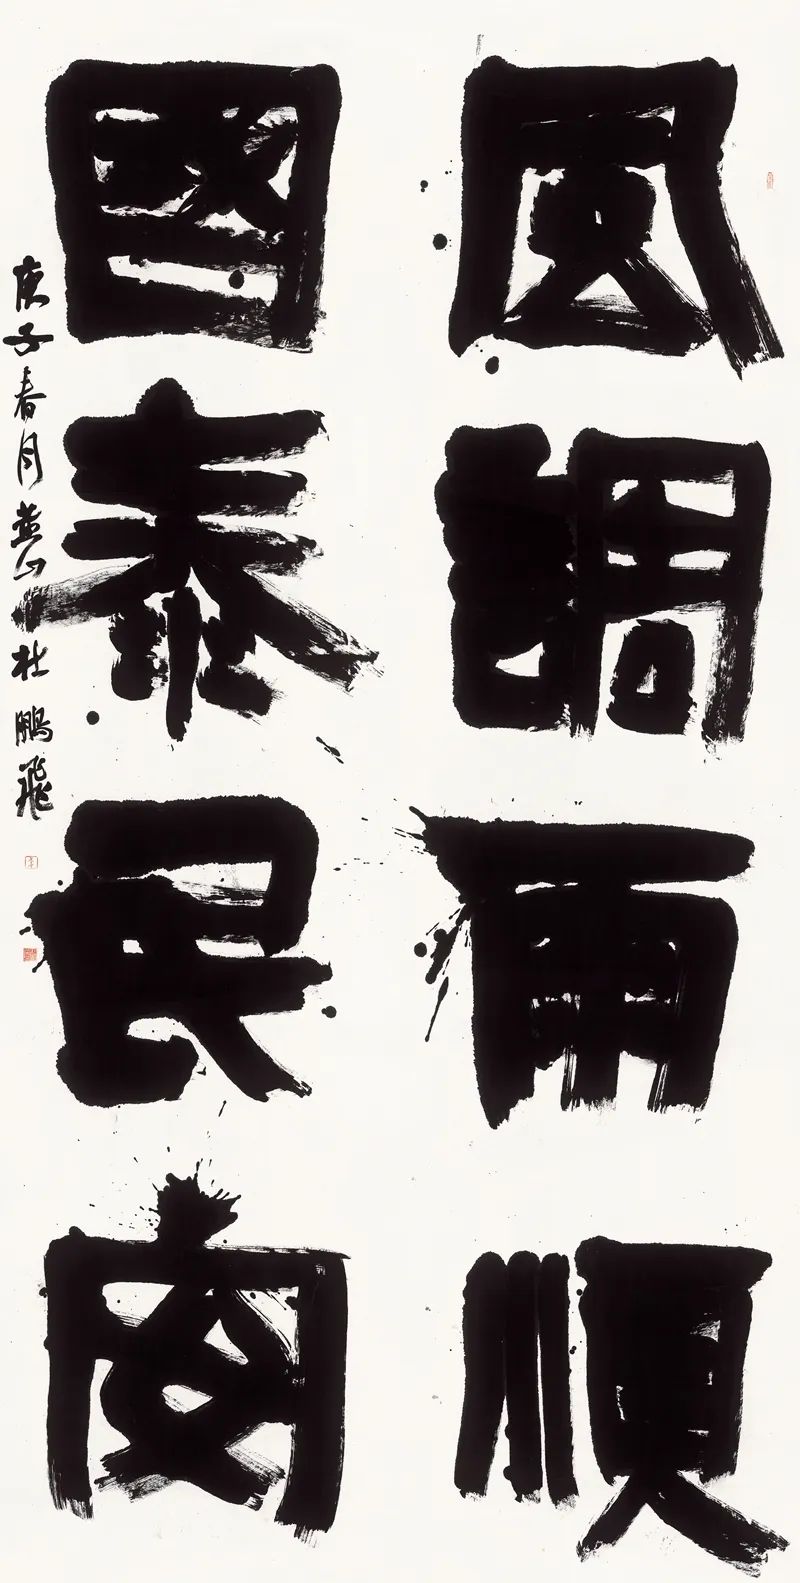 風調雨順
國泰民安
庚子春月燕山杜鵬飛